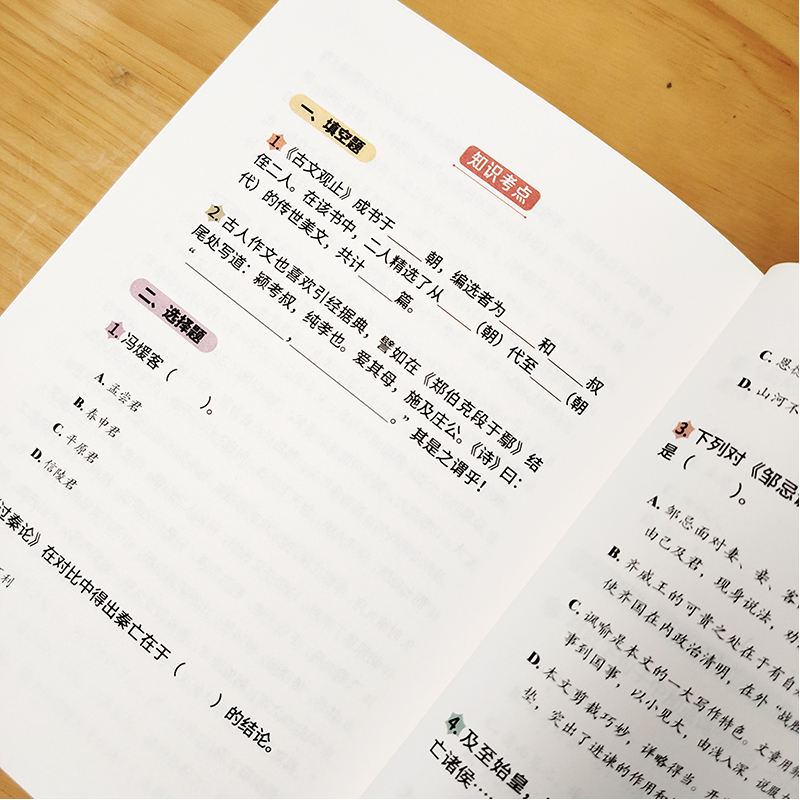 知识考点
一、填空题
1.《古文观止》成书于____朝，编选者为____和____叔
侄二人。在该书中，二人精选了从____(朝）代至____(朝
代）的传世美文，共计____篇。
2.古人作文也喜欢引经据典，譬如在《郑伯克段于鄢》结
尾处写道：颍考叔，纯孝也。爱其母，施及庄公。《诗》曰：
“____________，____________。”其是之谓乎！
二、选择题
1.冯煖客（　　）。
A.孟尝君
B.春申君
C.平原君
D.信陵君
过秦论》在对比中得出秦亡在于（　　）的结论。
利
C.恩
D.山河不
3.下列对《邹忌
是（　　）。
A.邹忌面对妻、妾、客
由己及君，现身说法，劝
B.齐威王的可贵之处在于有自
使齐国在内政治清明，在外“战胜
C.讽喻是本文的一大写作特色。文章用
事到国事，以小见大，由浅入深，说服
D.本文剪裁巧妙，详略得当。开
垫，突出了进谏的作用和
4.及至始皇，
亡诸侯……